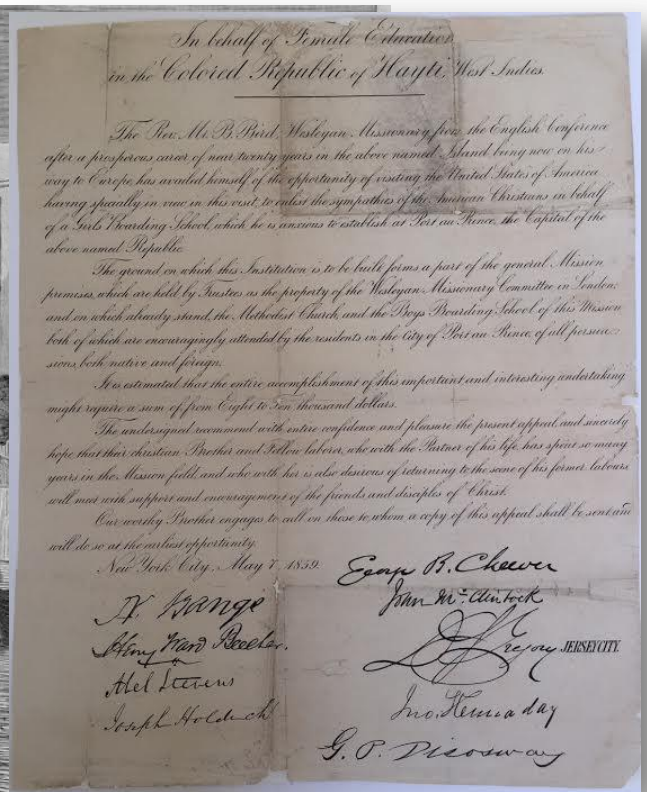 In behalf of Female Education
in the Colored Republic of Hayti, West Indies.
The Rev. Mr. B. Bird, Wesleyan Missionary, from the English Conference
after a prosperous career of near twenty years in the above named Island being now on his
way to Europe, has availed himself of the opportunity of visiting the United States of America
having specially in view in this visit, to enlist the sympathies of the American Christians in behalf
of a Girls Boarding School, which he is anxious to establish at Port au Prince, the Capital of the
above named Republic.
The ground on which this Institution is to be built forms a part of the general Mission
premises, which are held by Trustees as the property of the Wesleyan Missionary Committee in London;
and on which already stand, the Methodist Church, and the Boys Boarding School of this Mission
both of which are encouragingly attended by the residents in the City of Port au Prince, of all persua=
sions, both native and foreign.
It is estimated that the entire accomplishment of this important and interesting undertaking
might require a sum of, from Eight to Ten thousand dollars.
The undersigned recommend with entire confidence and pleasure the present appeal, and sincerely
hope that their christian Brother and Fellow laborer, who with the Partner of his life, has spent so many
years in the Mission field, and who with her is also desirous of returning to the scene of his former labours
will meet with support and encouragement of the friends and disciples of Christ.
Our worthy Brother engages to call on those to whom a copy of this appeal shall be sent and
will do so at the earliest opportunity.
New York City, May 7, 1859.
George B. Cheever
John McClintock
N. Bangs
Henry Ward Beecher.
Gregory JERSEY CITY.
Abel Stevens
Joseph Holdich
Jno. Kennaday
G. P. Disosway